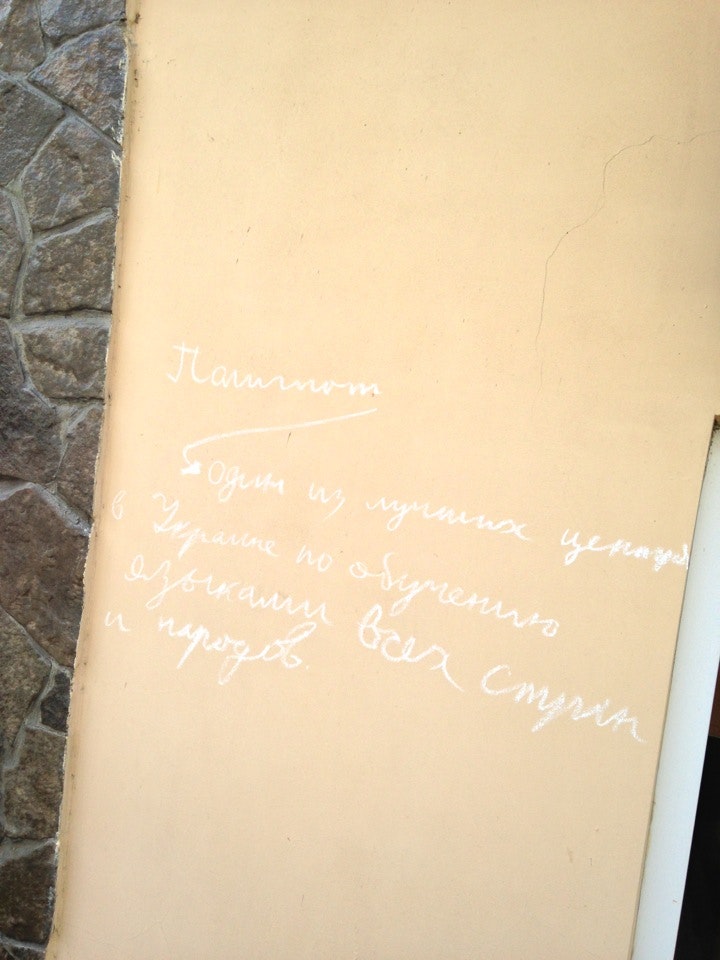 Полиглот
один из лучших центров
в Украине по обучению
языками всех стран
и народов.